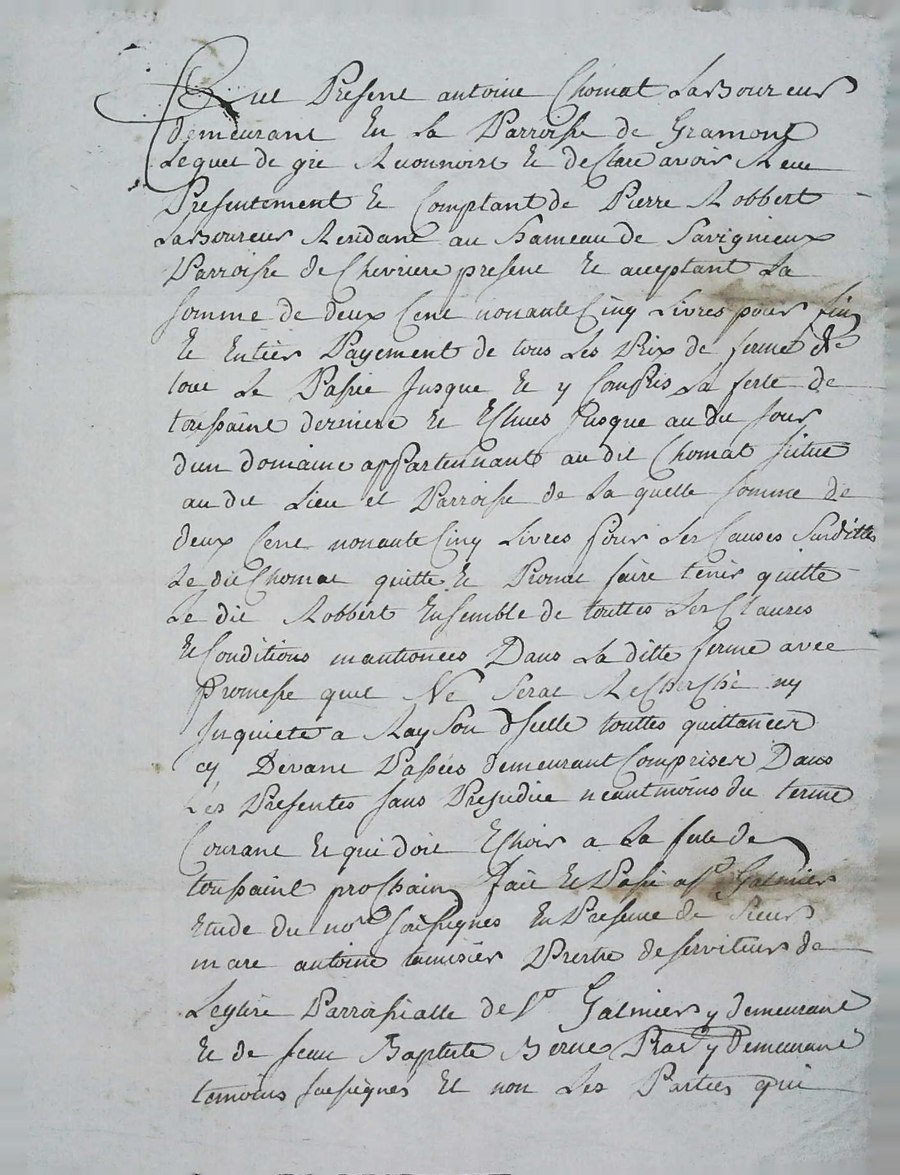 fut Present antoine Chomat Laboureur
demeurant En La Parroisse de Gramont
Lequel de gre Reconnoist Et declare avoir Receu
Presentement Et Comptant de Pierre Robbert
Laboureur Residant au hameau de Savignieux
Parroisse de Chevriere present Et acceptant La
somme de deux Cent nonante Cinq Livres pour fin
Et Entier Payement de tous Les Prix de ferme de
tout Le Passé Jusque Et y Compris La feste de
toussaint derniere Et Echues Jusque audit Jour
dun domaine appartennant audit Chomat situé
audit Lieu et Parroisse de La quelle somme de
deux Cent nonante Cinq Livres pour Les Causes Surdittes
Le dit Chomat quitte Et Promet faire tenir quitte
Le dit Robbert Ensemble de touttes Les Clauses
Et Conditions mantionees Dans La ditte ferme avec
Promesse quil Ne Serat Recherché ny
Inquiete a Rayson dicelle touttes quittances
cy Devant Passées demeurant Comprises Dans
Les Presentes sans Prejudice neantmoins du terme
Courant Et qui doit Echoir a La feste de
toussaint prochain fait Et Passé a St Galmier
Etude du nore soussignes En Presence de sieur
marc antoine tamisier Prestre desserviteur de
Leglise Parroissialle de St Galmier y demeurant
Et de Jean Baptiste Berne Prat y demeurant
temoins sousignes Et non Les Parties qui